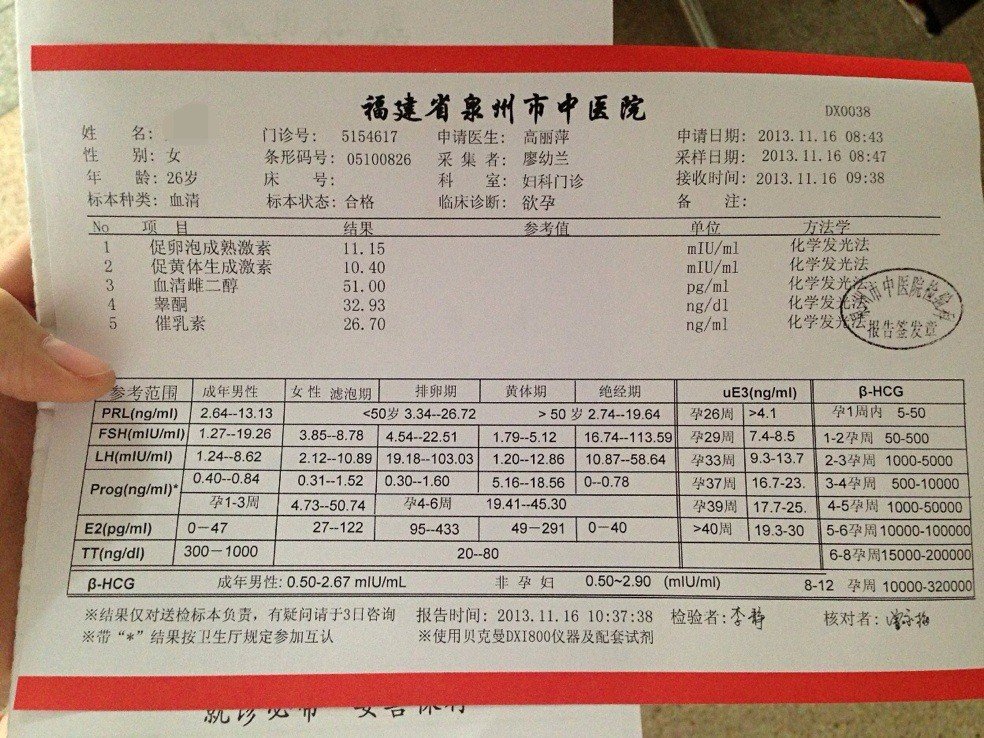 福建省泉州市中医院
DX0038
姓 名: 门诊号: 5154617 申请医生: 高丽萍 申请日期: 2013.11.16 08:43
性 别: 女 条形码号: 05100826 采集者: 廖幼兰 采样日期: 2013.11.16 08:47
年 龄: 26岁 床 号: 科 室: 妇科门诊 接收时间: 2013.11.16 09:38
标本种类: 血清 标本状态: 合格 临床诊断: 欲孕 备 注:
No 项 目 结果 参考值 单位 方法学
1 促卵泡成熟激素 11.15 mIU/ml 化学发光法
2 促黄体生成激素 10.40 mIU/ml 化学发光法
3 血清雌二醇 51.00 pg/ml 化学发光法
4 睾酮 32.93 ng/dl 化学发光法
5 催乳素 26.70 ng/ml 化学发光法
市中医院检验
报告签发章
参考范围 成年男性 女性 滤泡期 排卵期 黄体期 绝经期 uE3(ng/ml) β-HCG
PRL(ng/ml) 2.64--13.13 <50岁 3.34--26.72 > 50 岁 2.74--19.64 孕26周 >4.1 孕1周内 5-50
FSH(mIU/ml) 1.27--19.26 3.85--8.78 4.54--22.51 1.79--5.12 16.74--113.59 孕29周 7.4-8.5 1-2孕周 50-500
LH(mIU/ml) 1.24--8.62 2.12--10.89 19.18--103.03 1.20--12.86 10.87--58.64 孕33周 9.3-13.7 2-3孕周 1000-5000
Prog(ng/ml)* 0.40--0.84 0.31--1.52 0.30--1.60 5.16--18.56 0--0.78 孕37周 16.7-23. 3-4孕周 500-10000
孕1-3周 4.73--50.74 孕4-6周 19.41--45.30 孕39周 17.7-25. 4-5孕周 1000-50000
E2(pg/ml) 0－47 27--122 95--433 49－291 0－40 >40周 19.3-30 5-6孕周10000-100000
TT(ng/dl) 300－1000 20--80 6-8孕周15000-200000
β-HCG 成年男性: 0.50-2.67 mIU/mL 非 孕 妇 0.50~2.90 (mIU/ml) 8-12 孕周 10000-320000
※结果仅对送检标本负责，有疑问请于3日咨询 报告时间: 2013.11.16 10:37:38 检验者: 李静 核对者:
※带“*”结果按卫生厅规定参加互认 ※使用贝克曼DXI800仪器及配套试剂